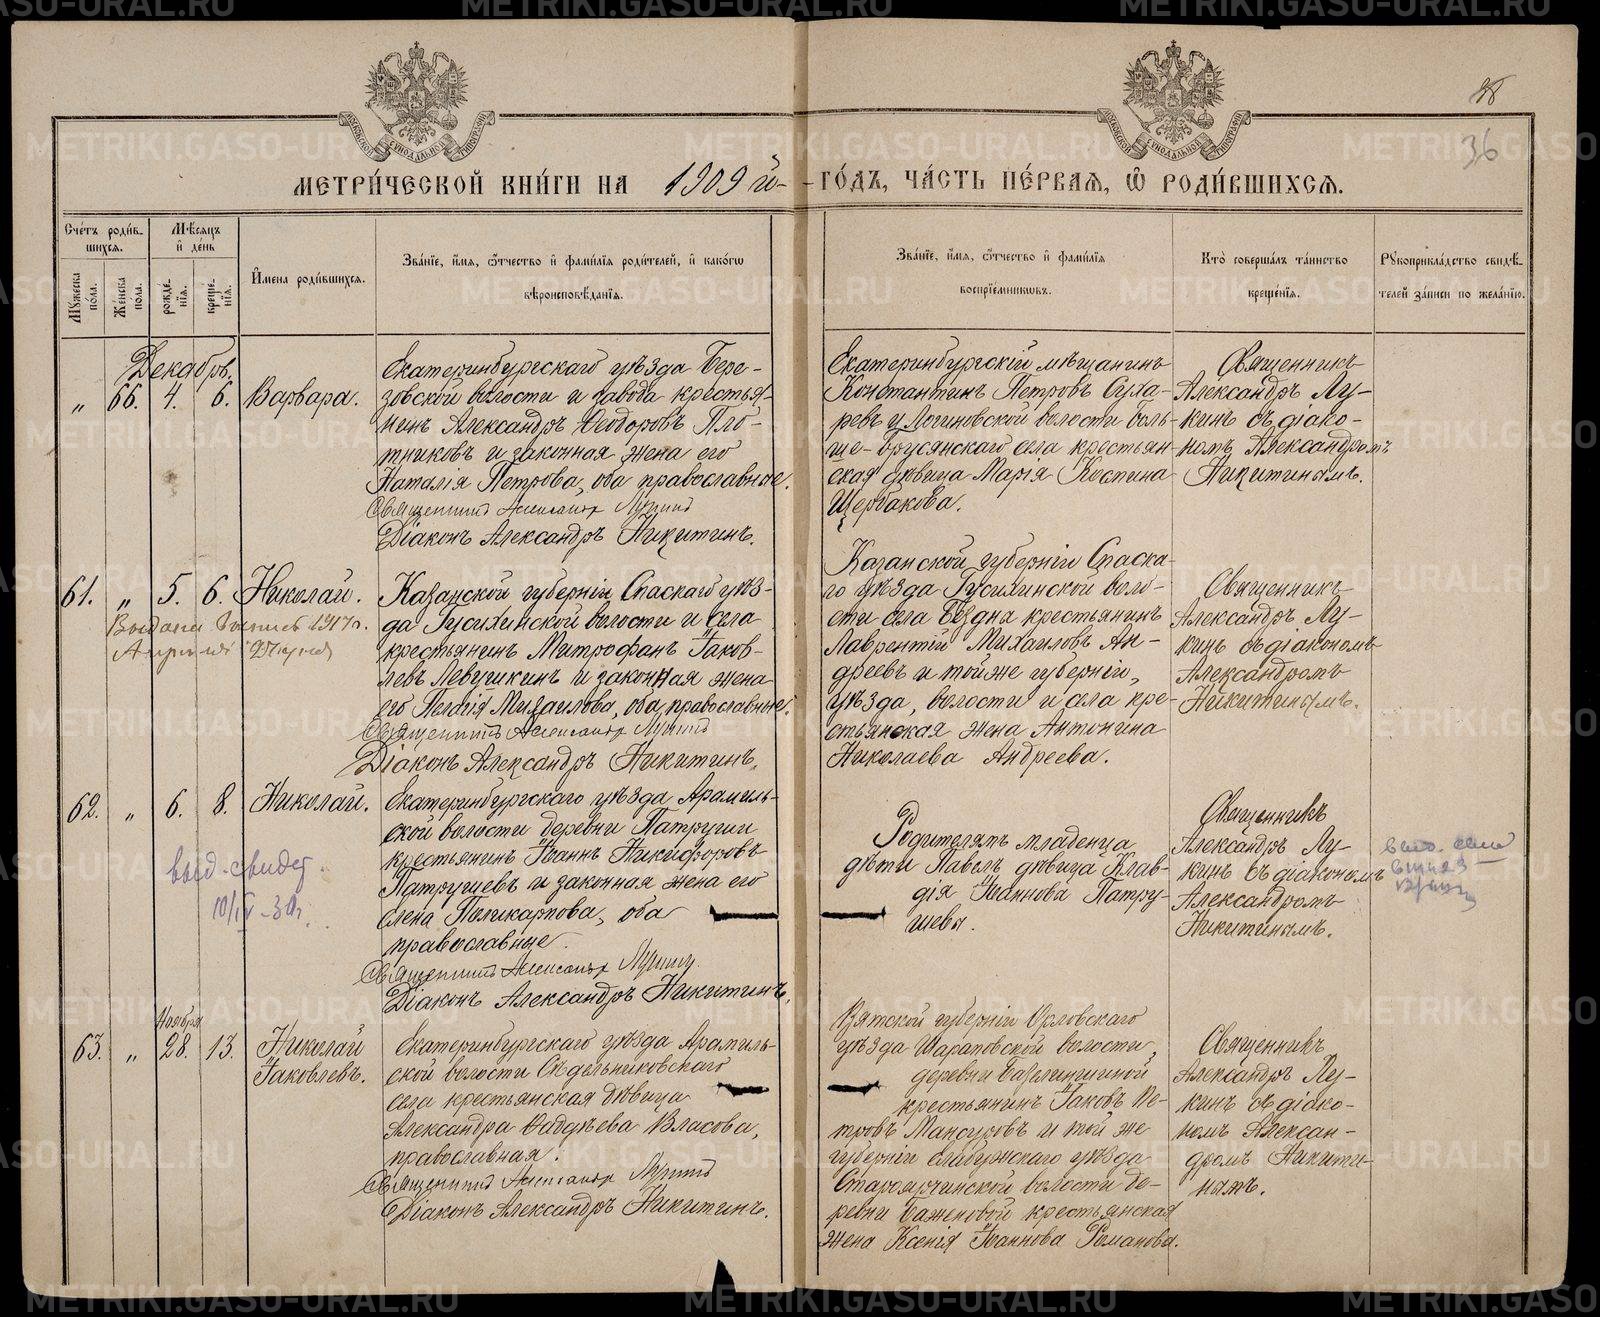 МЕТРИ́ЧЕСКОЙ КНИ́ГИ НА 1909 й ГО́ДЪ, ЧА́СТЬ ПЕ́РВАЯ, Ѿ РОДИ́ВШИХСЯ.
36
Сче́тъ роди́в-
шихся.
Мꙋ́жеска по́ла.
Же́нска по́ла.
Мѣ́сяцъ
и де́нь
рожде́-
нїя.
креще́-
нїя.
И҆мена роди́вшихся.
Зва́нїе, и҆́мя, ѻ҆́тчество и҆ фами́лїя роди́телей, и҆ како́гѡ
вѣроисповѣ́данїя.
Зва́нїе, и҆́мя, ѻ҆́тчество и҆ фами́лїя
воспрїе́мниковъ.
Кто̀ соверша́лъ та́инство
креще́нїя.
Рꙋкоприкла́дство свидѣ́-
телей за́писи по жела́нїю.
Декабрь
„ 66. 4. 6. Варвара.
Екатеринбургскаго уѣзда Бере-
зовской волости и завода крестья-
нинъ Александръ Ѳеодоровъ Пло-
тниковъ и законная жена его
Наталія Петрова, оба православные.
Священникъ Александръ Лукинъ
Діаконъ Александръ Никитинъ.
Екатеринбургскій мѣщанинъ
Константинъ Петровъ Суха-
ревъ и Логиновской волости Боль-
ше-Брусянскаго села крестьян-
ская дѣвица Марія Космина
Щербакова.
Священникъ
Александръ Лу-
кинъ съ діако-
номъ Александромъ
Никитинымъ.
61. „ 5. 6. Николай.
Выдана выпись 1917 г.
Апрѣля
Казанской губерніи Спаскаго уѣз-
да Гусихинской волости и села
крестьянинъ Митрофанъ Іаков-
левъ Левушкинъ и законная жена
его Пелагія Михаилова, оба православные.
Священникъ Александръ Лукинъ
Діаконъ Александръ Никитинъ.
Казанской губерніи Спаска-
го уѣзда Гусихинской воло-
сти села Бездна крестьянинъ
Лаврентій Михаиловъ Ан-
дреевъ и той же губерніи,
уѣзда, волости и села кре-
стьянская жена Антонина
Николаева Андреева.
Священникъ
Александръ Лу-
кинъ съ діакономъ
Александромъ
Никитинымъ.
62. „ 6. 8. Николай.
выд. свидет.
10/IV-30г.
Екатеринбургскаго уѣзда Арамиль-
ской волости деревни Патруши
крестьянинъ Іоаннъ Никифоровъ
Патрушевъ и законная жена его
Елена Поликарпова, оба
православные.
Священникъ Александръ Лукинъ
Діаконъ Александръ Никитинъ.
Родителямъ младенца
дѣти Павелъ дѣвица Клав-
дія Іоаннова Патру-
шевы.
Священникъ
Александръ Лу-
кинъ съ діакономъ
Александромъ
Никитинымъ.
Ноября
63. „ 28. 13. Николай
Іаковлевъ.
Екатеринбургскаго уѣзда Арамиль-
ской волости Сѣдельниковскаго
села крестьянская дѣвица
Александра Ѳаддѣева Власова,
православная.
Священникъ Александръ Лукинъ
Діаконъ Александръ Никитинъ.
Вятской губерніи Орловскаго
уѣзда Шараповской волости,
деревни
крестьянинъ Іаковъ Пе-
тровъ Мансуровъ и той же
губерніи Елабужскаго уѣзда
волости де-
ревни Баженовой крестьянская
жена Ксенія Іоаннова Романова.
Священникъ
Александръ Лу-
кинъ съ діако-
номъ Алексан-
дромъ Никити-
нымъ.